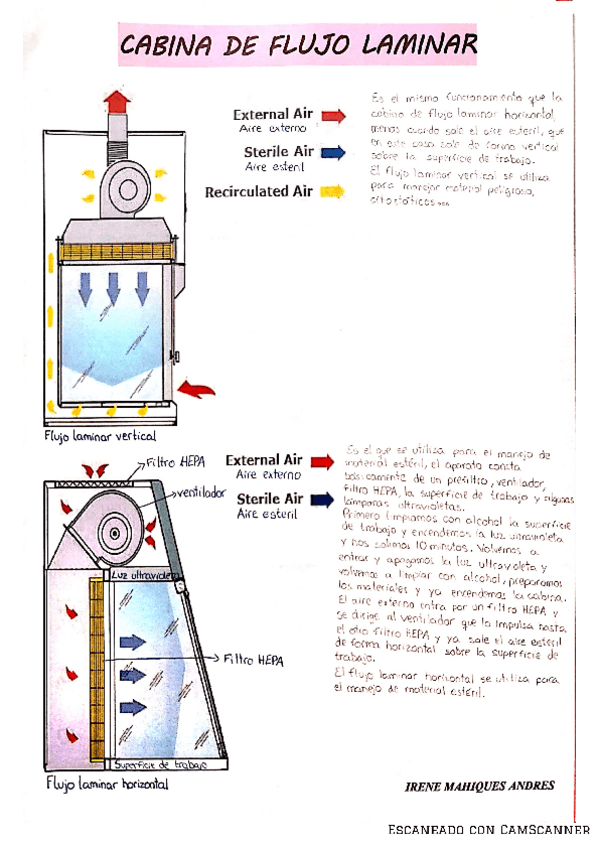 CABINA DE FLUJO LAMINAR
External Air
Aire externo
Sterile Air
Aire esteril
Recirculated Air
Es el mismo funcionamiento que la
cabina de flujo laminar horizontal,
menos cuando sale el aire esteril, que
en este caso sale de forma vertical
sobre la superficie de trabajo.
El flujo laminar vertical se utiliza
para manejar material peligroso,
citostóticos...
Flujo laminar vertical
Filtro HEPA
ventilador
Luz ultravioleta
Filtro HEPA
Superficie de trabajo
Flujo laminar horizontal
External Air
Aire externo
Sterile Air
Aire esteril
Es el que se utiliza para el manejo de
material estéril, el aparato consta
básicamente de un prefiltro, ventilador,
Filtro HEPA, la superficie de trabajo y algunas
lámparas ultravioletas.
Primero limpiamos con alcohol la superficie
de trabajo y encendemos la luz ultravioleta
y nos salimos 10 minutos. Volvemos a
entrar y apagamos la luz ultravioleta y
volvemos a limpiar con alcohol, preparamos
los materiales y ya encendemos la cabina.
El aire externo entra por un filtro HEPA y
se dirige al ventilador que la impulsa hasta
el otro filtro HEPA y ya sale el aire esteril
de forma horizontal sobre la superficie de
trabajo.
El flujo laminar horizontal se utiliza para
el manejo de material estéril.
IRENE MAHIQUES ANDRES
ESCANEADO CON CAMSCANNER